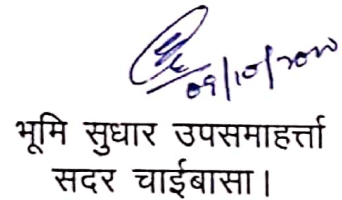 09/10/2020
भूमि सुधार उपसमाहर्त्ता
सदर चाईबासा।